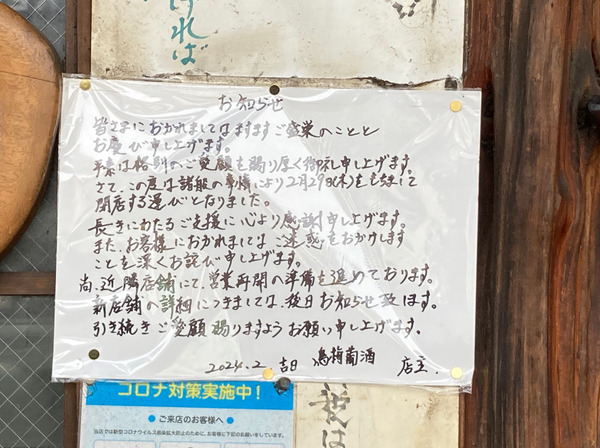 ければ
お知らせ
皆さまにおかれましてはますますご盛栄のことと
お慶び申し上げます。
平素は格別のご愛顧を賜り厚く御礼申し上げます。
さて、この度は諸般の事情により2月29日(木)をもちまして
閉店する運びとなりました。
長きにわたるご支援に心より感謝申し上げます。
また、お客様におかれましてはご迷惑をおかけします
ことを深くお詫び申し上げます。
尚、近隣店舗にて、営業再開の準備を進めております。
新店舗の詳細につきましては、後日お知らせ致します。
引き続きご愛顧賜りますようお願い申し上げます。
2024.2 吉日 鳥梅葡酒 店主.
コロナ対策実施中!
● ご来店のお客様へ ●
当店では新型コロナウイルス感染拡大防止のために、お客様に下記のお願いをしています。